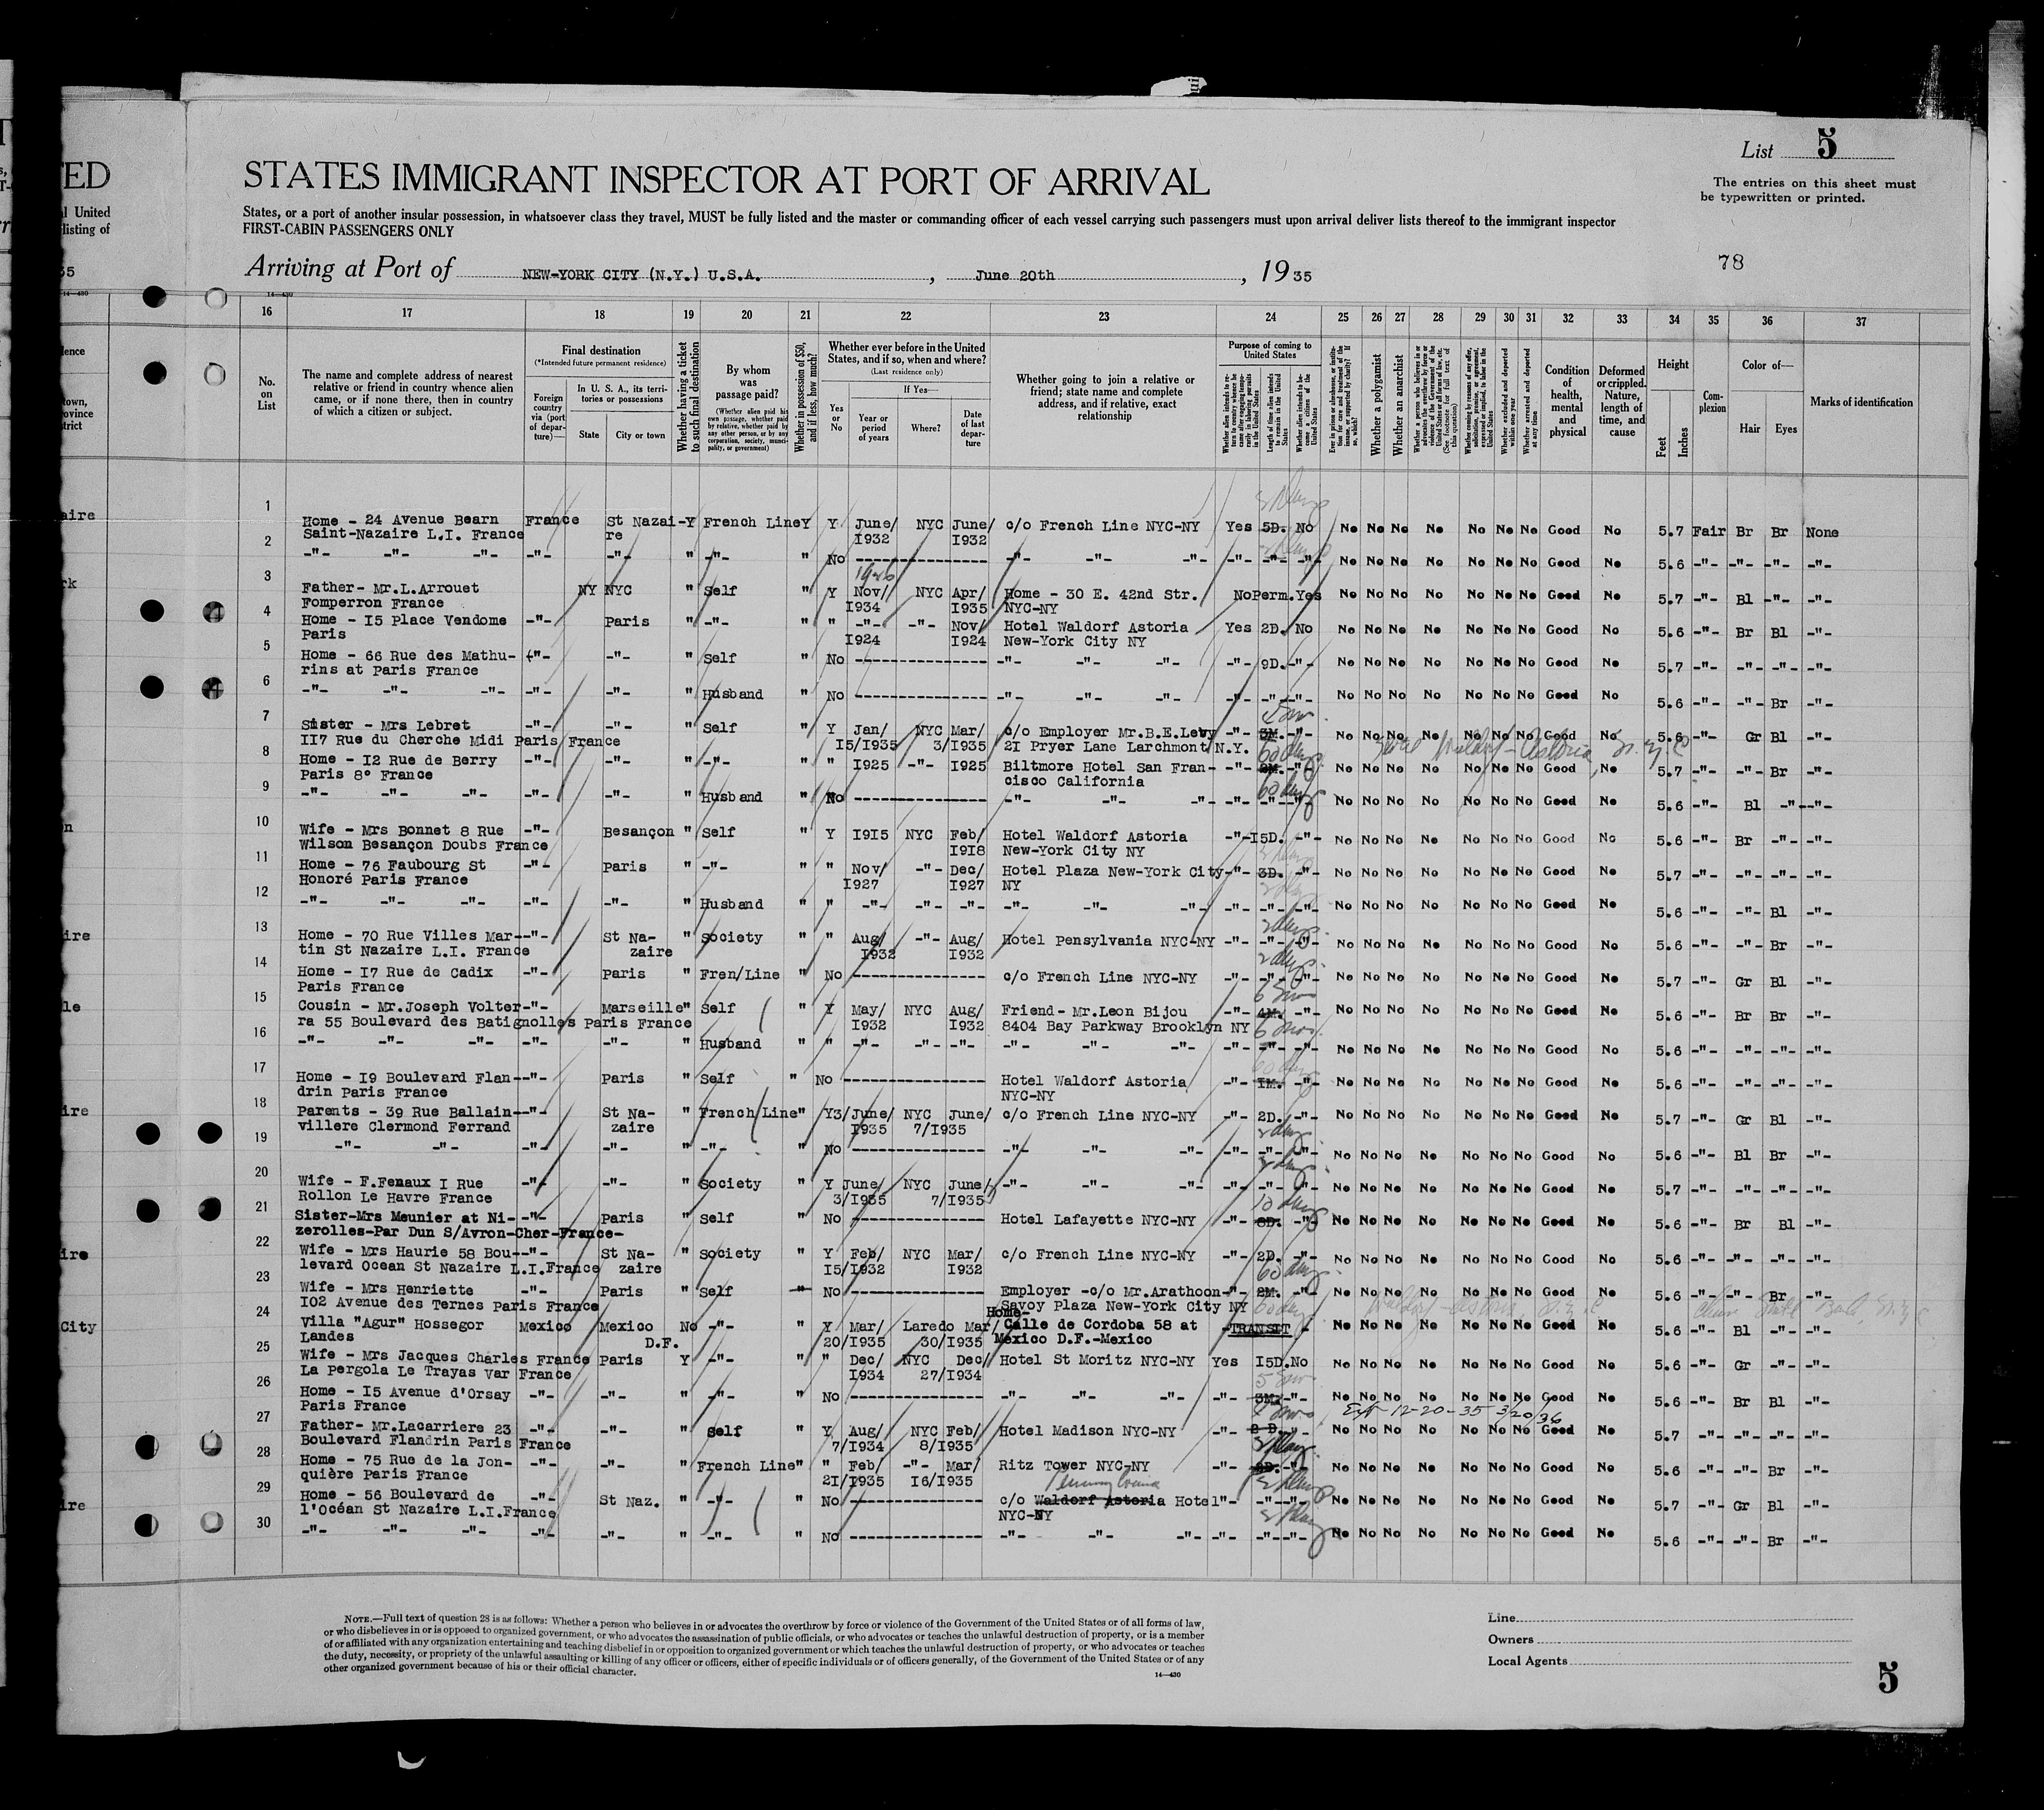 List 5
The entries on this sheet must
be typewritten or printed.
STATES IMMIGRANT INSPECTOR AT PORT OF ARRIVAL
States, or a port of another insular possession, in whatsoever class they travel, MUST be fully listed and the master or commanding officer of each vessel carrying such passengers must upon arrival deliver lists thereof to the immigrant inspector
FIRST-CABIN PASSENGERS ONLY
Arriving at Port of NEW-YORK CITY (N.Y.) U.S.A. , June 20th , 19 35
78
16 17 18 19 20 21 22 23 24 25 26 27 28 29 30 31 32 33 34 35 36 37
No. on List
The name and complete address of nearest relative or friend in country whence alien came, or if none there, then in country of which a citizen or subject.
Final destination
(*Intended future permanent residence)
Foreign country via (port of departure)—
In U. S. A., its territories or possessions
State
City or town
Whether having a ticket to such final destination
By whom was passage paid?
(Whether alien paid his own passage, whether paid by relative, whether paid by any other person, or by any corporation, society, municipality, or government)
Whether in possession of $50, and if less, how much?
Whether ever before in the United States, and if so, when and where?
(Last residence only)
Yes or No
If Yes—
Year or period of years
Where?
Date of last departure
Whether going to join a relative or friend; state name and complete address, and if relative, exact relationship
Purpose of coming to United States
Length of time alien intends to remain in the United States
Whether alien intends to become a citizen of the United States
Whether a polygamist
Whether an anarchist
Whether excluded and deported within one year
Whether arrested and deported at any time
Condition of health, mental and physical
Deformed or crippled. Nature, length of time, and cause
Height
Feet
Inches
Complexion
Color of—
Hair
Eyes
Marks of identification
1 Home - 24 Avenue Bearn France St Nazai- Y French Line Y Y June/ NYC June/ c/o French Line NYC-NY Yes 5D. No No No No No No No No Good No 5.7 Fair Br Br None
Saint-Nazaire L.I. France re I932 I932
2 -"- -"- -"- -"- -"- " -"- " No --------------- -"- -"- -"- -"- -"- -"- No No No No No No No Good No 5.6 -"- -"- -"- -"-
3 Father- Mr.L.Arrouet NY NYC " Self " Y Nov/ NYC Apr/ Home - 30 E. 42nd Str. No Perm. Yes No No No No No No No Good No 5.7 -"- Bl -"- -"-
Fomperron France I934 I935 NYC-NY
4 Home - I5 Place Vendome -"- Paris " -"- " " -"- -"- Nov/ Hotel Waldorf Astoria Yes 2D. No No No No No No No No Good No 5.6 -"- Br Bl -"-
Paris I924 I924 New-York City NY
5 Home - 66 Rue des Mathu- -"- -"- " Self " No --------------- -"- -"- -"- -"- 9D. -"- No No No No No No No Good No 5.7 -"- -"- -"- -"-
rins at Paris France
6 -"- -"- -"- -"- -"- " Husband " No --------------- -"- -"- -"- -"- -"- -"- No No No No No No No Good No 5.6 -"- -"- Br -"-
7 Sister - Mrs Lebret -"- -"- " Self " Y Jan/ NYC Mar/ c/o Employer Mr.B.E.Levy -"- 3M. -"- No No No No No No No Good No 5.6 -"- Gr Bl -"-
II7 Rue du Cherche Midi Paris France I5/I935 3/I935 2I Pryer Lane Larchmont N.Y.
Hotel Waldorf-Astoria, N.Y.C
8 Home - I2 Rue de Berry -"- -"- " -"- " " I925 -"- I925 Biltmore Hotel San Fran- -"- 2M. -"- No No No No No No No Good No 5.7 -"- -"- Br -"-
Paris 8° France cisco California 60 days
9 -"- -"- -"- -"- -"- " Husband " No --------------- -"- -"- -"- -"- -"- -"- No No No No No No No Good No 5.6 -"- Bl -"- -"-
60 days
10 Wife - Mrs Bonnet 8 Rue -"- Besançon " Self " Y I9I5 NYC Feb/ Hotel Waldorf Astoria -"- I5D. -"- No No No No No No No Good No 5.6 -"- Br -"- -"-
Wilson Besançon Doubs France I9I8 New-York City NY
11 Home - 76 Faubourg St -"- Paris " -"- " " Nov/ -"- Dec/ Hotel Plaza New-York City -"- 3D. -"- No No No No No No No Good No 5.7 -"- -"- -"- -"-
Honoré Paris France I927 I927 NY
12 -"- -"- -"- -"- -"- " Husband " " -"- -"- -"- -"- -"- -"- -"- -"- -"- No No No No No No No Good No 5.6 -"- -"- Bl -"-
13 Home - 70 Rue Villes Mar- -"- St Na- " Society " " Aug/ -"- Aug/ Hotel Pensylvania NYC-NY -"- -"- -"- No No No No No No No Good No 5.6 -"- -"- Br -"-
tin St Nazaire L.I. France zaire I932 I932
14 Home - I7 Rue de Cadix -"- Paris " Fren/Line " No --------------- c/o French Line NYC-NY -"- -"- -"- No No No No No No No Good No 5.7 -"- Gr Bl -"-
Paris France
15 Cousin - Mr.Joseph Volter- -"- Marseille " Self " Y May/ NYC Aug/ Friend- Mr.Leon Bijou -"- 4M. -"- No No No No No No No Good No 5.6 -"- Br Br -"-
ra 55 Boulevard des Batignolles Paris France I932 I932 8404 Bay Parkway Brooklyn NY
16 -"- -"- -"- -"- -"- " Husband " " -"- -"- -"- -"- -"- -"- -"- -"- -"- No No No No No No No Good No 5.6 -"- -"- -"- -"-
17 Home - I9 Boulevard Flan- -"- Paris " Self " No --------------- Hotel Waldorf Astoria -"- IM. -"- No No No No No No No Good No 5.6 -"- -"- -"- -"-
drin Paris France NYC-NY
18 Parents - 39 Rue Ballain- -"- St Na- " French Line " Y 3/June/ NYC June/ c/o French Line NYC-NY -"- 2D. -"- No No No No No No No Good No 5.7 -"- Gr Bl -"-
villere Clermond Ferrand zaire I935 7/I935
19 -"- -"- -"- -"- " -"- " No --------------- -"- -"- -"- -"- -"- -"- No No No No No No No Good No 5.6 -"- Bl Br -"-
20 Wife - F.Fenaux I Rue -"- -"- " Society " Y June/ NYC June/ -"- -"- -"- -"- -"- -"- No No No No No No No Good No 5.7 -"- -"- -"- -"-
Rollon Le Havre France 3/I935 7/I935
21 Sister-Mrs Meunier at Ni- -"- Paris " Self " No --------------- Hotel Lafayette NYC-NY -"- 8D. -"- No No No No No No No Good No 5.6 -"- Br Bl -"-
zerolles-Par Dun S/Avron-Cher-France- 10 days
22 Wife - Mrs Haurie 58 Bou- -"- St Na- " Society " Y Feb/ NYC Mar/ c/o French Line NYC-NY -"- 2D. -"- No No No No No No No Good No 5.6 -"- -"- -"- -"-
levard Ocean St Nazaire L.I.France zaire I5/I932 I932
23 Wife - Mrs Henriette -"- Paris " Self " No --------------- Employer -c/o Mr.Arathoon -"- 2M. -"- No No No No No No No Good No 5.6 -"- -"- Br -"-
I02 Avenue des Ternes Paris France Savoy Plaza New-York City NY 60 days
24 Villa "Agur" Hossegor Mexico Mexico No -"- " Y Mar/ Laredo Mar/ Home- Calle de Cordoba 58 at -TRANSIT- No No No No No No No Good No 5.6 -"- Bl -"- -"-
Landes D.F. 20/I935 30/I935 Mexico D.F.-Mexico
25 Wife - Mrs Jacques Charles France Paris Y -"- " " Dec/ NYC Dec/ Hotel St Moritz NYC-NY Yes I5D. No No No No No No No No Good No 5.6 -"- Gr -"- -"-
La Pergola Le Trayas Var France I934 27/I934
26 Home - I5 Avenue d'Orsay -"- -"- " -"- " No --------------- -"- -"- -"- -"- 3M. -"- No No No No No No No Good No 5.6 -"- Br Bl -"-
Paris France
Ext 12-20-35 3/20/36
27 Father- Mr.Lacarriere 23 -"- -"- " Self " Y Aug/ NYC Feb/ Hotel Madison NYC-NY -"- 2 D. -"- No No No No No No No Good No 5.7 -"- -"- -"- -"-
Boulevard Flandrin Paris France 7/I934 8/I935
28 Home - 75 Rue de la Jon- -"- -"- " French Line " " Feb/ -"- Mar/ Ritz Tower NYC-NY -"- 2D. -"- No No No No No No No Good No 5.6 -"- -"- Br -"-
quière Paris France 2I/I935 I6/I935
Pennsylvania
29 Home - 56 Boulevard de -"- St Naz. " -"- " No --------------- c/o Waldorf Astoria Hotel -"- -"- -"- No No No No No No No Good No 5.7 -"- Gr Bl -"-
l'Océan St Nazaire L.I.France NYC-NY
30 -"- -"- -"- -"- -"- " -"- " No --------------- -"- -"- -"- -"- -"- -"- No No No No No No No Good No 5.6 -"- -"- Br -"-
NOTE.—Full text of question 28 is as follows: Whether a person who believes in or advocates the overthrow by force or violence of the Government of the United States or of all forms of law,
or who disbelieves in or is opposed to organized government, or who advocates the assassination of public officials, or who advocates or teaches the unlawful destruction of property, or is a member
of or affiliated with any organization entertaining and teaching disbelief in or opposition to organized government or which teaches the unlawful destruction of property, or who advocates or teaches
the duty, necessity, or propriety of the unlawful assaulting or killing of any officer or officers, either of specific individuals or of officers generally, of the Government of the United States or of any
other organized government because of his or their official character.
14—430
Line
Owners
Local Agents
5